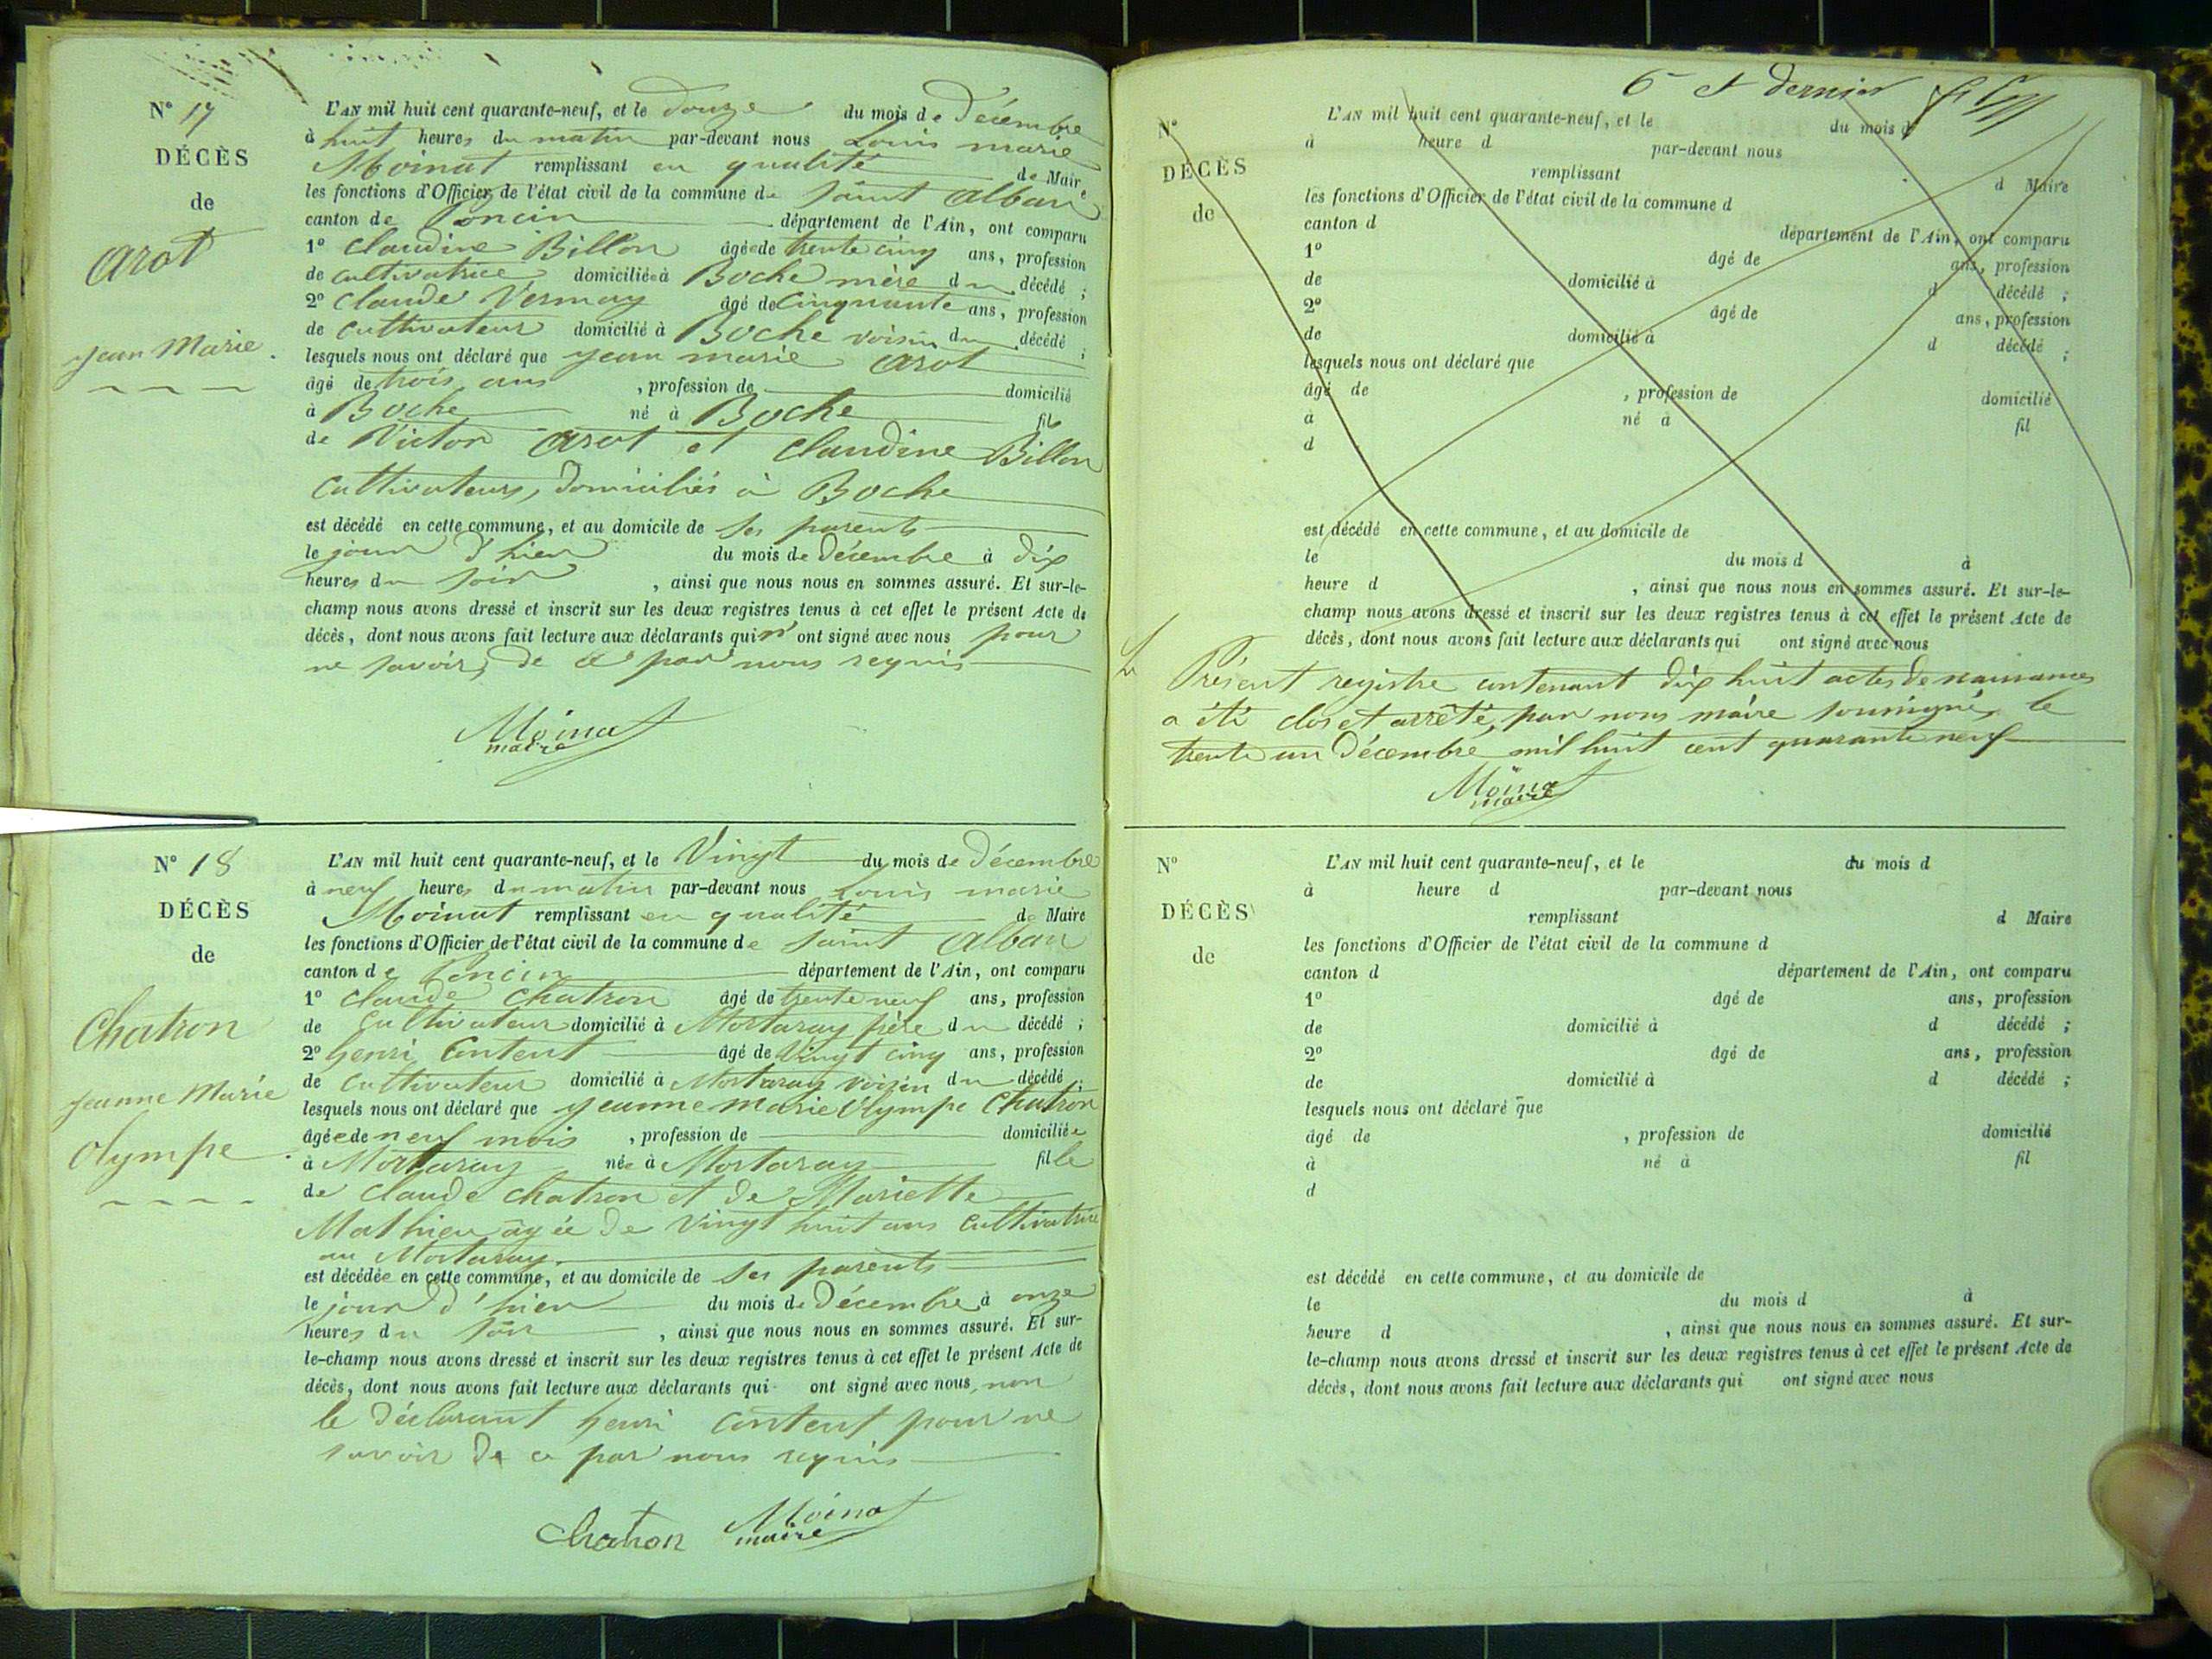 N° 17
DÉCÈS
de
Arot
Jean Marie.
L'AN mil huit cent quarante-neuf, et le douze du mois de Décembre
à huit heures du matin par-devant nous Louis marie
Moinat remplissant en qualité de Maire
les fonctions d'Officier de l'état civil de la commune de Saint Alban
canton de Poncin département de l'Ain, ont comparu
1° Claudine Billon âgée de trente cinq ans, profession
de cultivatrice domiciliée à Boche mère du décédé ;
2° Claude Vermay âgé de Cinquante ans, profession
de Cultivateur domicilié à Boche voisin du décédé ;
lesquels nous ont déclaré que jean marie Arot
âgé de trois ans , profession de domicilié
à Boche né à Boche fils
de Victor Arot et Claudine Billon
Cultivateurs, domiciliés à Boche
est décédé en cette commune, et au domicile de ses parents
le jour d'hier du mois de Décembre à dix
heures du soir , ainsi que nous nous en sommes assuré. Et sur-le-
champ nous avons dressé et inscrit sur les deux registres tenus à cet effet le présent Acte de
décès, dont nous avons fait lecture aux déclarants qui n' ont signé avec nous pour
ne savoir, de ce par nous requis
Moinat
maire
N° 18
DÉCÈS
de
Chatron
jeanne Marie
Olympe.
L'AN mil huit cent quarante-neuf, et le Vingt du mois de Décembre
à neuf heures du matin par-devant nous Louis marie
Moinat remplissant en qualité de Maire
les fonctions d'Officier de l'état civil de la commune de Saint Alban
canton de Poncin département de l'Ain, ont comparu
1° Claude Chatron âgé de trente neuf ans, profession
de Cultivateur domicilié à Mortaray père du décédé ;
2° henri Content âgé de Vingt cinq ans, profession
de Cultivateur domicilié à Mortaray voisin du décédé ;
lesquels nous ont déclaré que jeanne marie Olympe Chatron
âgée de neuf mois , profession de domiciliée
à Mortaray née à Mortaray fille
de Claude Chatron et de Mariette
Mathieu agée de Vingt huit ans Cultivatrice
au Mortaray.
est décédée en cette commune, et au domicile de ses parents
le jour d'hier du mois de Décembre à onze
heures du soir , ainsi que nous nous en sommes assuré. Et sur-
le-champ nous avons dressé et inscrit sur les deux registres tenus à cet effet le présent Acte de
décès, dont nous avons fait lecture aux déclarants qui ont signé avec nous, non
le déclarant henri Content pour ne
savoir de ce par nous requis
Chatron Moinat
maire
6 et dernier
N°
DÉCÈS
de
L'AN mil huit cent quarante-neuf, et le du mois d
à heure d par-devant nous
remplissant d Maire
les fonctions d'Officier de l'état civil de la commune d
canton d département de l'Ain, ont comparu
1° âgé de ans, profession
de domicilié à d décédé ;
2° âgé de ans, profession
de domicilié à d décédé ;
lesquels nous ont déclaré que
âgé de , profession de domicilié
à né à fil
d
est décédé en cette commune, et au domicile de
le du mois d à
heure d , ainsi que nous nous en sommes assuré. Et sur-le-
champ nous avons dressé et inscrit sur les deux registres tenus à cet effet le présent Acte de
décès, dont nous avons fait lecture aux déclarants qui ont signé avec nous
Le Présent registre contenant dix huit actes de naissances
a été clos et arrêté, par nous maire soussigné, le
trente un Décembre mil huit cent quarante neuf
Moinat
maire
N°
DÉCÈS
de
L'AN mil huit cent quarante-neuf, et le du mois d
à heure d par-devant nous
remplissant d Maire
les fonctions d'Officier de l'état civil de la commune d
canton d département de l'Ain, ont comparu
1° âgé de ans, profession
de domicilié à d décédé ;
2° âgé de ans, profession
de domicilié à d décédé ;
lesquels nous ont déclaré que
âgé de , profession de domicilié
à né à fil
d
est décédé en cette commune, et au domicile de
le du mois d à
heure d , ainsi que nous nous en sommes assuré. Et sur-
le-champ nous avons dressé et inscrit sur les deux registres tenus à cet effet le présent Acte de
décès, dont nous avons fait lecture aux déclarants qui ont signé avec nous